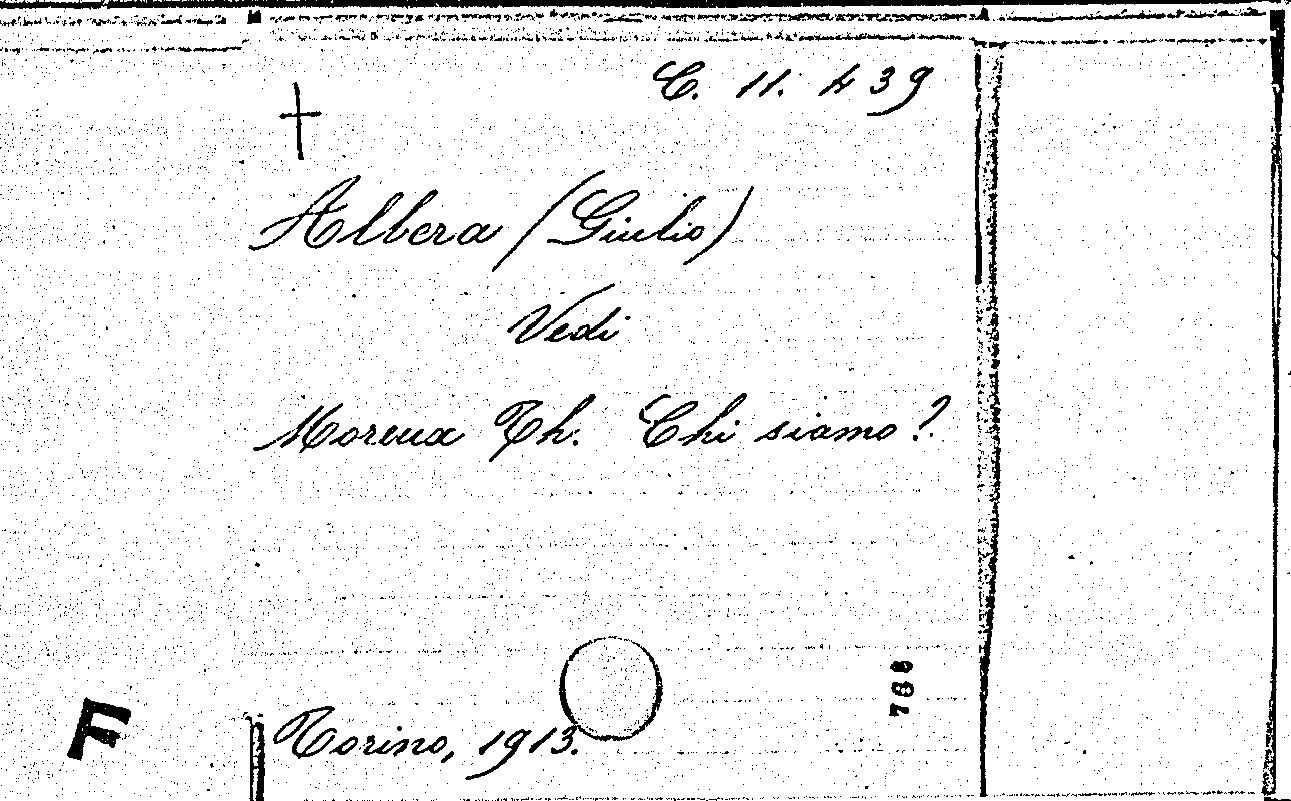 C. 11. 439
+
Albera (Giulio)
Vedi
Moreux Th. Chi siamo?
Torino, 1913.
F